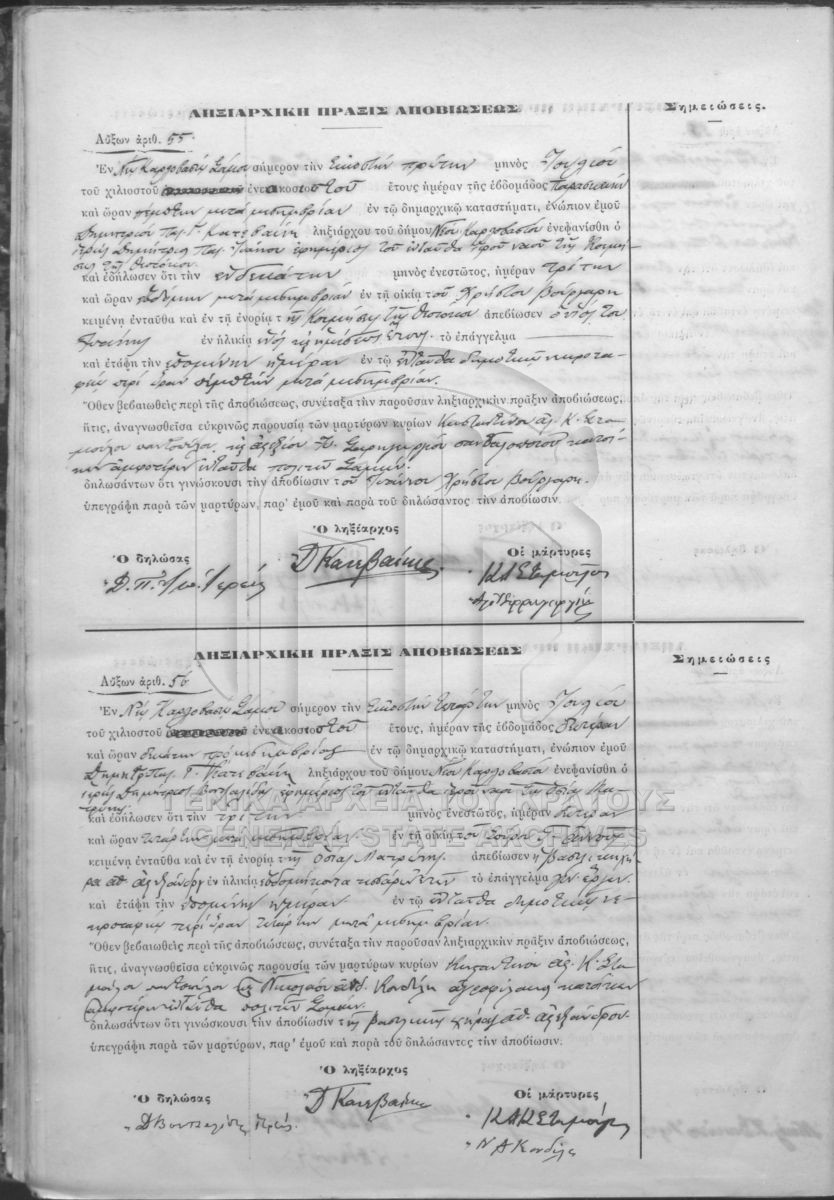 ΛΗΞΙΑΡΧΙΚΗ ΠΡΑΞΙΣ ΑΠΟΒΙΩΣΕΩΣ
Σημειώσεις.
Αὔξων ἀριθ. 55.
Ἐν Νέῳ Καρλοβασίῳ Σάμου σήμερον τὴν Εἰκοστὴν πρώτην μηνὸς Ἰουλίου
τοῦ χιλιοστοῦ ἐνεακοσιοστοῦ ἔτους ἡμέραν τῆς ἑβδομάδος Παρασκευὴν
καὶ ὥραν πέμπτην μετὰ μεσημβρίαν ἐν τῷ δημαρχικῷ καταστήματι, ἐνώπιον ἐμοῦ
Δημητρίου Κατεβαίνη ληξιάρχου τοῦ δήμου Νέου Καρλοβασίου ἐνεφανίσθη ὁ
ἱερεὺς Δημήτριος ἐφημέριος τοῦ ἐνταῦθα ἱεροῦ ναοῦ τῆς Κοιμή-
σεως τῆς Θεοτόκου
καὶ ἐδήλωσεν ὅτι τὴν ἑνδεκάτην μηνὸς ἐνεστῶτος, ἡμέραν τρίτην
καὶ ὥραν ἑβδόμην μετὰ μεσημβρίαν ἐν τῇ οἰκίᾳ τοῦ Χρήστου Βούργαρη
κειμένῃ ἐνταῦθα καὶ ἐν τῇ ἐνορίᾳ τῆς Κοιμήσεως τῆς Θεοτόκου ἀπεβίωσεν ὁ υἱός του
Ἰωάννης ἐν ἡλικίᾳ ἑνὸς ἡμίσεως ἔτους. τὸ ἐπάγγελμα
καὶ ἐτάφη τὴν ἑπομένην ἡμέραν ἐν τῷ ἐνταῦθα δημοτικῷ νεκροτα-
φείῳ περὶ ὥραν πέμπτην μετὰ μεσημβρίαν.
Ὅθεν βεβαιωθεὶς περὶ τῆς ἀποβιώσεως, συνέταξα τὴν παροῦσαν ληξιαρχικὴν πρᾶξιν ἀποβιώσεως,
ἥτις, ἀναγνωσθεῖσα εὐκρινῶς παρουσίᾳ τῶν μαρτύρων κυρίων Κωνσταντίνου Ἀλ. Κ. Στα-
μούλου παντοπώλου σανδαλοποιοῦ κατοί-
κων ἀμφοτέρων ἐνταῦθα πολιτῶν Σαμίων.
δηλωσάντων ὅτι γινώσκουσι τὴν ἀποβίωσιν τοῦ Ἰωάννου Χρήστου Βούργαρη.
ὑπεγράφη παρὰ τῶν μαρτύρων, παρ' ἐμοῦ καὶ παρὰ τοῦ δηλώσαντος τὴν ἀποβίωσιν.
Ὁ ληξίαρχος
Ὁ δηλώσας
Οἱ μάρτυρες
Δ Κατεβαίνης
ΛΗΞΙΑΡΧΙΚΗ ΠΡΑΞΙΣ ΑΠΟΒΙΩΣΕΩΣ
Σημειώσεις
Αὔξων ἀριθ. 56
Ἐν Νέῳ Καρλοβασίῳ Σάμου σήμερον τὴν Εἰκοστὴν τετάρτην μηνὸς Ἰουλίου
τοῦ χιλιοστοῦ ἐνεακοσιοστοῦ ἔτους, ἡμέραν τῆς ἑβδομάδος Δευτέραν
καὶ ὥραν δεκάτην πρὸ μεσημβρίας ἐν τῷ δημαρχικῷ καταστήματι, ἐνώπιον ἐμοῦ
Δημητρίου Κατεβαίνη ληξιάρχου τοῦ δήμου Νέου Καρλοβασίου ἐνεφανίσθη ὁ
ἱερεὺς Δημήτριος ἐφημέριος τοῦ ἐνταῦθα ἱεροῦ ναοῦ τῆς Ὁσίας Μα-
τρώνης
καὶ ἐδήλωσεν ὅτι τὴν τρίτην μηνὸς ἐνεστῶτος, ἡμέραν Δευτέραν
καὶ ὥραν τετάρτην μετὰ μεσημβρίαν ἐν τῇ οἰκίᾳ τοῦ
κειμένῃ ἐνταῦθα καὶ ἐν τῇ ἐνορίᾳ τῆς Ὁσίας Ματρώνης ἀπεβίωσεν ἡ Βασιλικὴ χή-
ρα Ἀθ. Ἀλεξάνδρου ἐν ἡλικίᾳ ἑβδομήκοντα τεσσάρων ἐτῶν τὸ ἐπάγγελμα
καὶ ἐτάφη τὴν ἑπομένην ἡμέραν ἐν τῷ ἐνταῦθα δημοτικῷ νε-
κροταφείῳ περὶ ὥραν τετάρτην μετὰ μεσημβρίαν.
Ὅθεν βεβαιωθεὶς περὶ τῆς ἀποβιώσεως, συνέταξα τὴν παροῦσαν ληξιαρχικὴν πρᾶξιν ἀποβιώσεως,
ἥτις, ἀναγνωσθεῖσα εὐκρινῶς παρουσίᾳ τῶν μαρτύρων κυρίων Κωνσταντίνου Ἀλ. Κ. Στα-
μούλου παντοπώλου Νικολάου Κονδύλη κατοίκων
ἀμφοτέρων ἐνταῦθα πολιτῶν Σαμίων.
δηλωσάντων ὅτι γινώσκουσι τὴν ἀποβίωσιν τῆς Βασιλικῆς χήρας Ἀθ. Ἀλεξάνδρου.
ὑπεγράφη παρὰ τῶν μαρτύρων, παρ' ἐμοῦ καὶ παρὰ τοῦ δηλώσαντος τὴν ἀποβίωσιν.
Ὁ ληξίαρχος
Ὁ δηλώσας
Οἱ μάρτυρες
Δ Κατεβαίνης
Ν Α Κονδύλης
ΓΕΝΙΚΑ ΑΡΧΕΙΑ ΤΟΥ ΚΡΑΤΟΥΣ
GENERAL STATE ARCHIVES